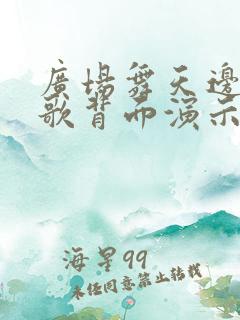 廣場舞天邊
歌背面演示
海星99
未任同意禁止转载